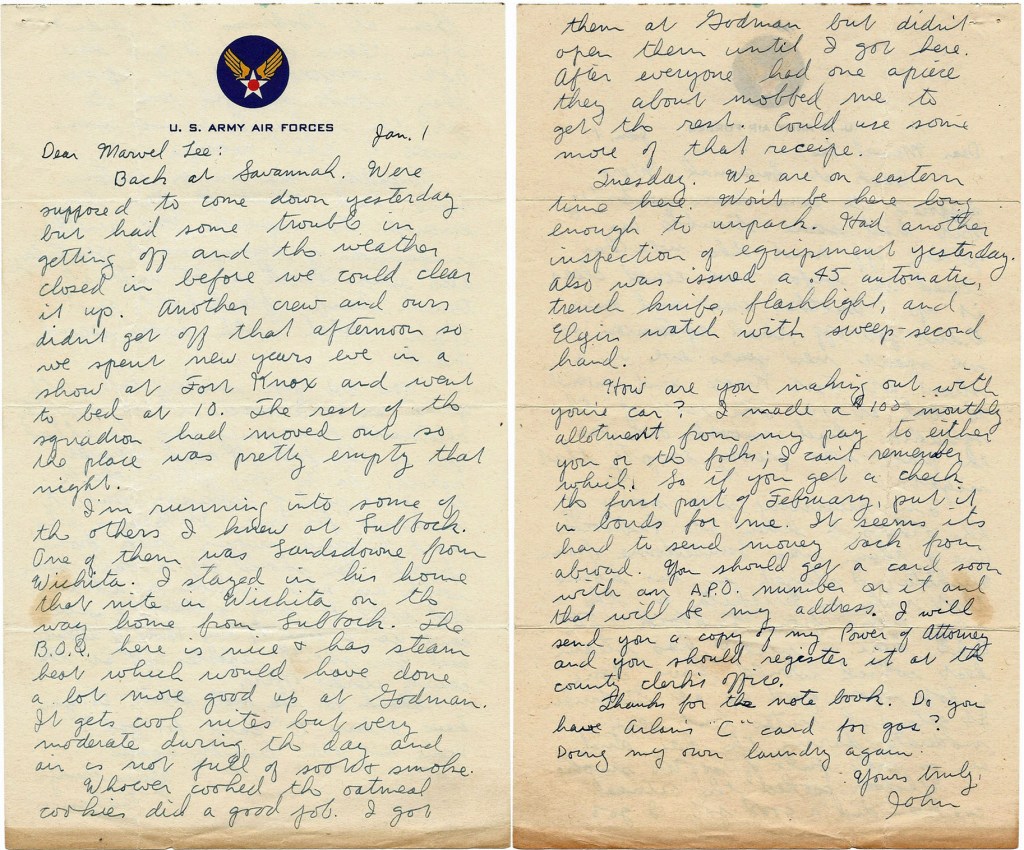 U. S. ARMY AIR FORCES
Jan. 1
Dear Marvel Lee:
Back at Savannah. Were
supposed to come down yesterday
but had some trouble in
getting off and the weather
closed in before we could clear
it up. Another crew and ours
didn't get off that afternoon so
we spent new years eve in a
show at Fort Knox and went
to bed at 10. The rest of the
squadron had moved out so
the place was pretty empty that
night.
I'm running into some of
the others I knew at Lubbock.
One of them was Landsdowne from
Wichita. I stayed in his home
that nite in Wichita on the
way home from Lubbock. The
B.O.Q. here is nice & has steam
heat which would have done
a lot more good up at Godman.
It gets cool nites but very
moderate during the day and
air is not full of soot & smoke.
Whoever cooked the oatmeal
cookies did a good job. I got
them at Godman but didn't
open them until I got here.
After everyone had one apiece
they about mobbed me to
get the rest. Could use some
more of that receipe.
Tuesday. We are on eastern
time here. Won't be here long
enough to unpack. Had another
inspection of equipment yesterday.
Also was issued a .45 automatic,
trench knife, flashlight, and
Elgin watch with sweep-second
hand.
How are you making out with
you're car? I made a $100 monthly
allotment from my pay to either
you or the folks; I can't remember
which. So if you get a check
the first part of February, put it
in bonds for me. It seems its
hard to send money back from
abroad. You should get a card soon
with an A.P.O. number on it and
that will be my address. I will
send you a copy of my Power of Attorney
and you should register it at the
county clerk's office.
Thanks for the note book. Do you
have Arlan's "C" card for gas?
Doing my own laundry again.
Yours truly,
John